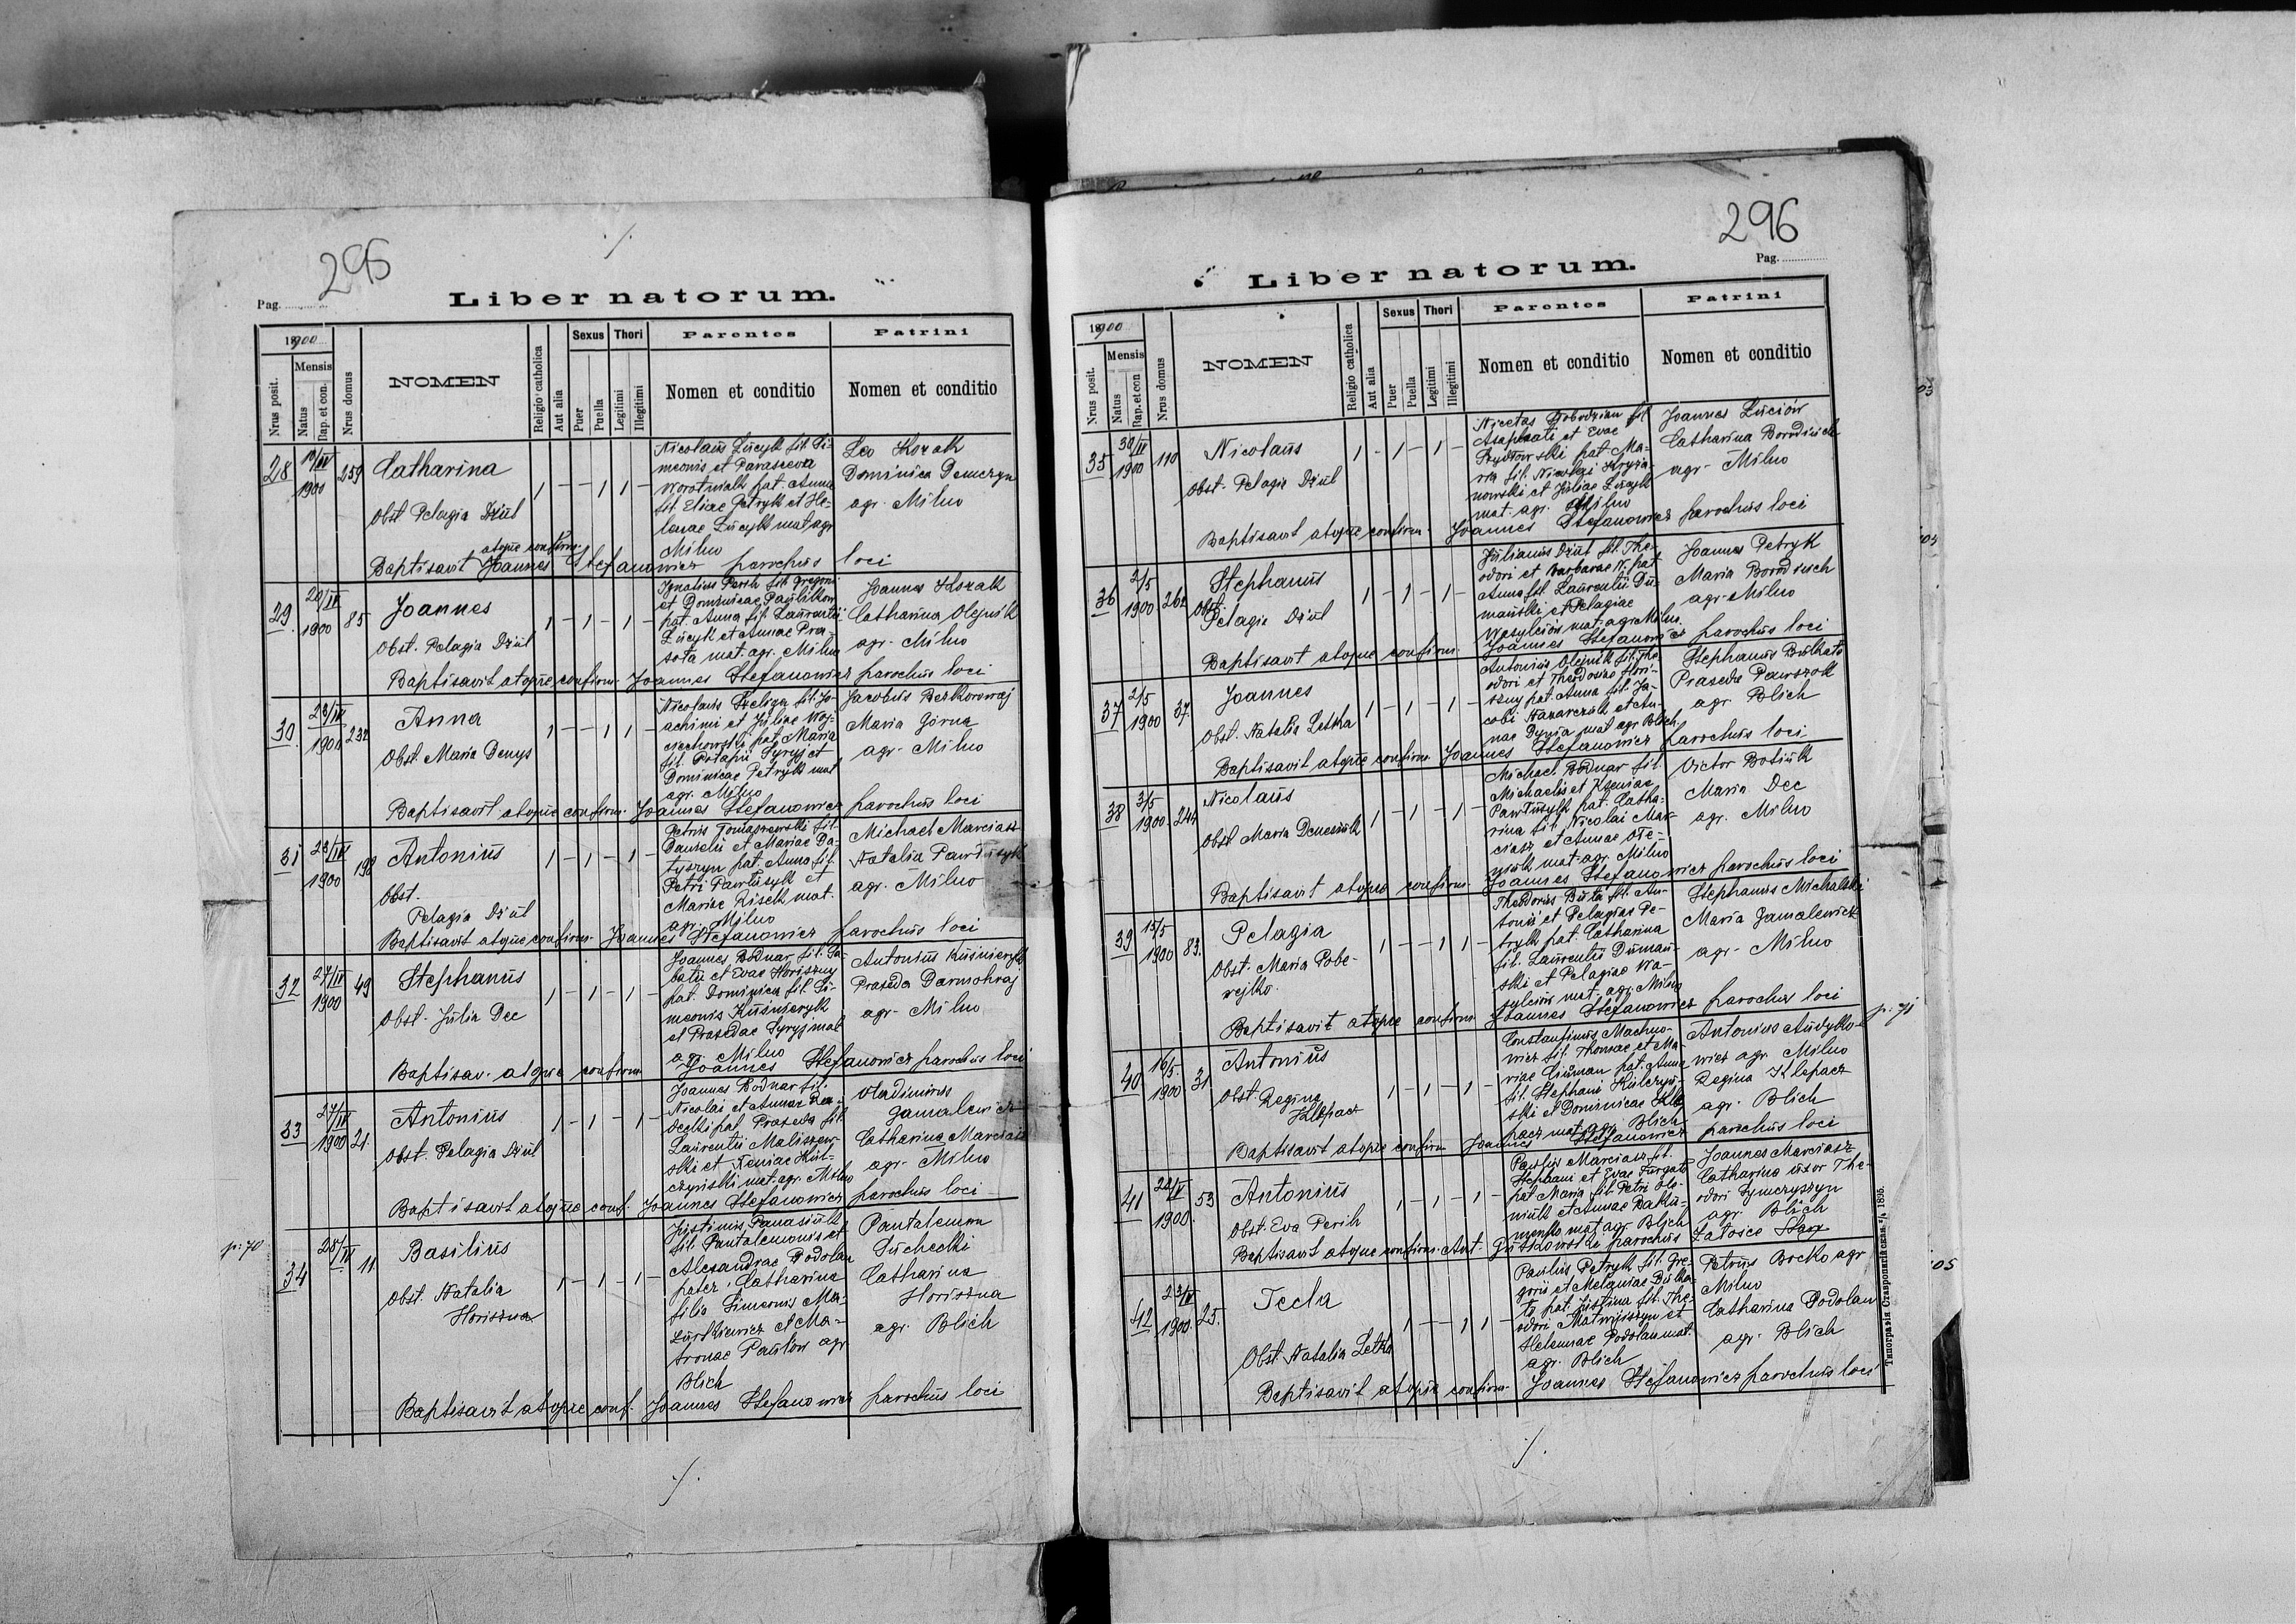 295
Pag.
Liber natorum.
1900
Nrus posit.
Mensis
Natus
Bap. et con.
Nrus domus
NOMEN
Religio catholica
Aut alia
Sexus
Puer
Puella
Thori
Legitimi
Illegitimi
Parentes
Nomen et conditio
Patrini
Nomen et conditio
28
1900
259
Catharina
Obst Pelagia Dziul
1 - - 1 1 -
Nicolaus Łucyk fil. Si-
meonis et Parasceva
Worotniak pat. Anna
fil. Eliae Petryk et He-
lenae Łucyk mat agr
Milno
Leo Kozak
Dominica Demczyn
agr. Milno
atque confirm.
Baptisavit Joannes Stefanowicz parochus loci
29.
20/IV
1900
85
Joannes
Obst. Pelagia Dziul
1 - 1 - 1 -
Ignatius Perih fil. Gregorii
et Dominicae Paulikow
pat. Anna fil. Laurentii
Łucyk et Annae Pro-
sota mat. agr. Milno
Joannes Kozak
Catharina Olejnik
agr. Milno
Baptisavit atque confirm. Joannes Stefanowicz parochus loci
30.
23/IV
1900
232
Anna
Obst. Maria Denys
1 - - 1 1 -
Nicolaus Szeliga fil. Jo-
achimi et Juliae Woj-
ciechowski pat. Maria
fil. Potapii Syryj et
Dominicae Petryk mat
agr. Milno
Jacobus Bezkorowaj
Maria Górna
agr. Milno
Baptisavit atque confirm. Joannes Stefanowicz parochus loci
31
23/IV
1900
198
Antonius
Obst.
Pelagia Dziul
1 - 1 - 1 -
Petrus Tomaszewski fil.
Danielis et Mariae Da-
tyszyn pat. Anna fil.
Petri Pawlusyk et
Mariae Zisek mat.
agr. Milno
Michael Marciasz
Natalia Pawlusyk
agr. Milno
Baptisavit atque confirm. Joannes Stefanowicz parochus loci
32
27/IV
1900
49
Stephanus
Obst. Julia Dec
1 - 1 - 1 -
Joannes Bodnar fil. Sa-
batii et Evae Horiszny
pat. Dominica fil. Si-
meonis Kuśnieryk
et Praxedae Syryj mat
agr. Milno
Antonius Kuśnieryk
Praxeda Darmohraj
agr. Milno
Baptisav. atque confirm. Joannes Stefanowicz parochus loci
33
27/IV
1900
21.
Antonius
Obst. Pelagia Dziul
1 - 1 - 1 -
Joannes Bodnar fil.
Nicolai et Annae Ra-
decki pat Praxeda fil.
Laurentii Maliszew-
ski et Xeniae Kul-
czyński mat. agr. Milno
Vladimirus
Jamalewicz
Catharina Marciasz
agr. Milno
Baptisavit atque conf. Joannes Stefanowicz parochus loci
p. 70
34
28/IV
11
Basilius
Obst. Natalia
Horiszna
1 - 1 - 1 -
Justinus Panasiuk
fil. Pantalemonis et
Alexandrae Podolan
pater, Catharina
filia Simeonis Ma-
zurkiewicz et Ma-
tronae Paulow agr
Blich
Pantalemon
Suchecki
Catharina
Horiszna
agr. Blich
Baptisavit atque conf. Joannes Stefanowicz parochus loci
296
Pag.
Liber natorum.
1900
Nrus posit.
Mensis
Natus
Bap. et con
Nrus domus
NOMEN
Religio catholica
Aut alia
Sexus
Puer
Puella
Thori
Legitimi
Illegitimi
Parentes
Nomen et conditio
Patrini
Nomen et conditio
35
30/IV
1900
110
Nicolaus
Obst. Pelagia Dziul
1 - 1 - 1 -
Nicetas fil.
Asaphati et Evae
Szydłowski pat. Ma-
ria fil. Nicolai Kryża-
nowski et Juliae Łucyk
mat. agr. Milno
Joannes Łuciów
Catharina Borodiuch
agr. Milno
Baptisavit atque confirm. Joannes Stefanowicz parochus loci
36
2/5
1900
262
Stephanus
Obst
Pelagia Dziul
1 - 1 - 1 -
Julianus Dziul fil. The-
odori et Barbarae N. pat.
Anna fil. Laurentii Du-
mański et Pelagiae
Wasylciów mat. agr Milno
Joannes Petryk
Maria Borodiuch
agr. Milno
Baptisavit atque confirm. Joannes Stefanowicz parochus loci
37
2/5
1900
37.
Joannes
Obst. Natalia Letka
1 - 1 - 1 -
Antonius Olejnik fil. The-
odori et Theodosiae Hori-
szny pat. Anna fil. Ja-
cobi Nazarczuk et An-
nae Dynia mat agr Blich.
Stephanus Bulkato
Praxeda Pawszok
agr Blich
Baptisavit atque confirm. Joannes Stefanowicz parochus loci
38
3/5
1900
244
Nicolaus
Obst Maria Denesiuk
1 - 1 - 1 -
Michael Bodnar fil.
Michaelis et Kseniae
Pawlusyk pat. Catha-
rina fil. Nicolai Mar-
ciasz et Annae Ole-
niuk mat. agr. Milno
Victor Botiuk
Maria Dec
agr. Milno
Baptisavit atque confirm. Joannes Stefanowicz parochus loci
39
15/5
1900
83.
Pelagia
Obst. Maria Pobe-
rejko.
1 - - 1 1 -
Theodorus Buta fil. An-
tonii et Pelagiae Pe-
tryk pat. Catharina
fil. Laurentii Dumań-
ski et Pelagiae Wa-
sylciów mat. agr. Milno
Stephanus Michalski
Maria Jamalewicz
agr. Milno
Baptisavit atque confirm. Joannes Stefanowicz parochus loci
p. 71
40
16/5.
1900
31
Antonius
Obst. Regina
Klepacz
1 - 1 - 1 -
Constantinus Machno-
wicz fil. Thomae et Ma
riae Ciuman pat. Anna
fil. Stephani Kulczyń-
ski et Dominicae Kle
pacz mat agr. Blich
Antonius Audyko-
wicz agr. Milno
Regina Klepacz
agr. Blich
Baptisavit atque confirm Joannes Stefanowicz parochus loci
41
22/V
1900.
53
Antonius
Obst. Eva Perih
1 - 1 - 1 -
Paulus Marciasz fil.
Stephani et Evae Furgało
pat Maria fil. Petri Ole-
niuk et Annae Baku-
menko mat agr Blich
Joannes Marciasz
Catharina uxor The-
odori Symczyszyn
agr. Blich
Baptisavit atque confirm. Ant. Gutkowski parochus Załośce
42
23/V
1900.
25.
Tecla
Obst. Natalia Letka
1 - - 1 1 -
Paulus Petryk fil. Gre-
gorii et Melaniae Bulka-
to pat. Justina fil. The-
odori Matwijiszyn et
Helennae Podolan mat.
agr. Blich
Petrus Bocko agr
Milno
Catharina Podolan
agr. Blich
Baptisavit atque confirm. Joannes Stefanowicz parochus loci
Типографія Ставропигійская 1895.